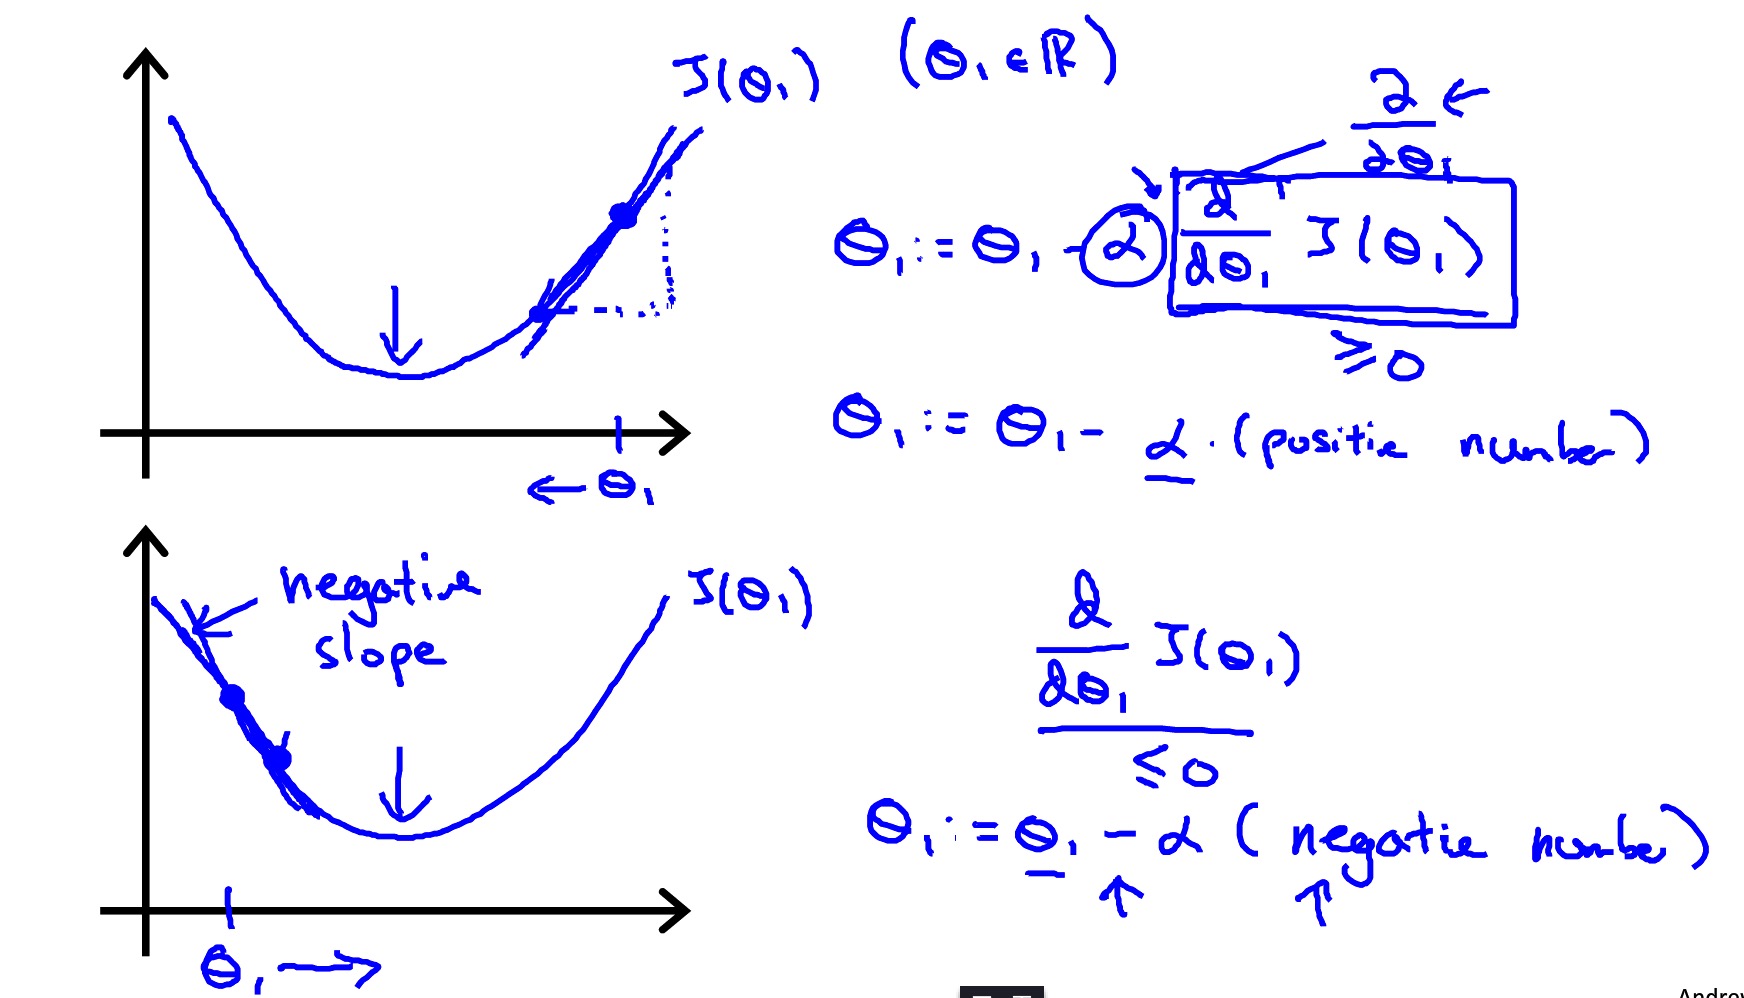 J(θ₁) (θ₁ ∈ ℝ)
∂/∂θ₁ ←
θ₁ := θ₁ - α d/dθ₁ J(θ₁)
≥ 0
θ₁ := θ₁ - α · (positive number)
← θ₁
negative
slope
J(θ₁)
d/dθ₁ J(θ₁)
≤ 0
θ₁ := θ₁ - α (negative number)
θ₁ →
Andrew